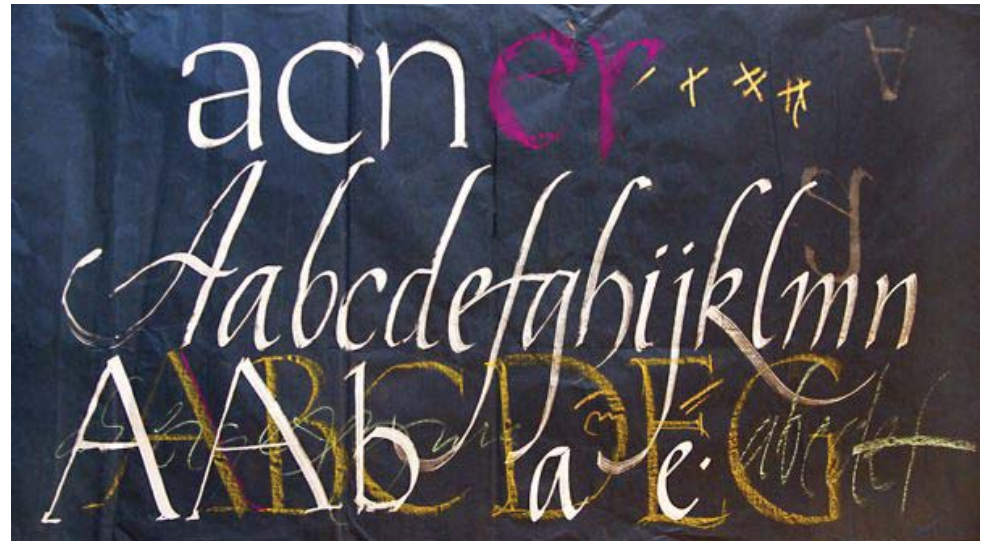 acner
Aabcdefghijklmn
AAb a e.
ABCDEG